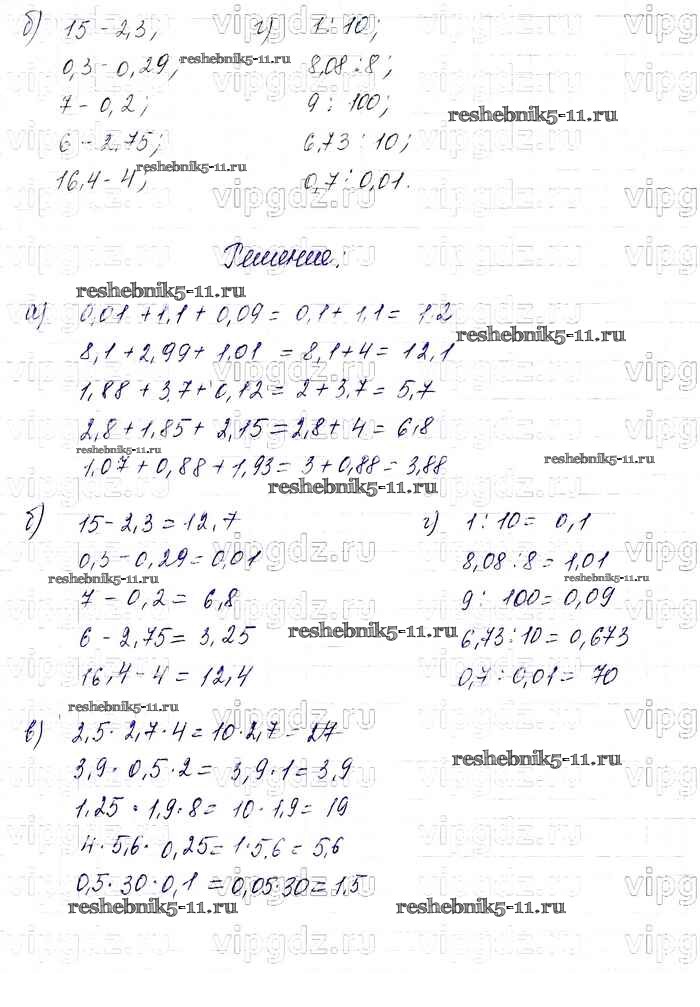 б) 15 - 2,3; г) 1 : 10;
0,3 - 0,29; 8,08 : 8;
7 - 0,2; 9 : 100;
6 - 2,75; 6,73 : 10;
16,4 - 4; 0,7 : 0,01.
Решение.
а) 0,01 + 1,1 + 0,09 = 0,1 + 1,1 = 1,2
8,1 + 2,99 + 1,01 = 8,1 + 4 = 12,1
1,88 + 3,7 + 0,12 = 2 + 3,7 = 5,7
2,8 + 1,85 + 2,15 = 2,8 + 4 = 6,8
1,07 + 0,88 + 1,93 = 3 + 0,88 = 3,88
б) 15 - 2,3 = 12,7 г) 1 : 10 = 0,1
0,3 - 0,29 = 0,01 8,08 : 8 = 1,01
7 - 0,2 = 6,8 9 : 100 = 0,09
6 - 2,75 = 3,25 6,73 : 10 = 0,673
16,4 - 4 = 12,4 0,7 : 0,01 = 70
в) 2,5 · 2,7 · 4 = 10 · 2,7 = 27
3,9 · 0,5 · 2 = 3,9 · 1 = 3,9
1,25 · 1,9 · 8 = 10 · 1,9 = 19
4 · 5,6 · 0,25 = 1 · 5,6 = 5,6
0,5 · 30 · 0,1 = 0,05 · 30 = 1,5
reshebnik5-11.ru
vipgdz.ru